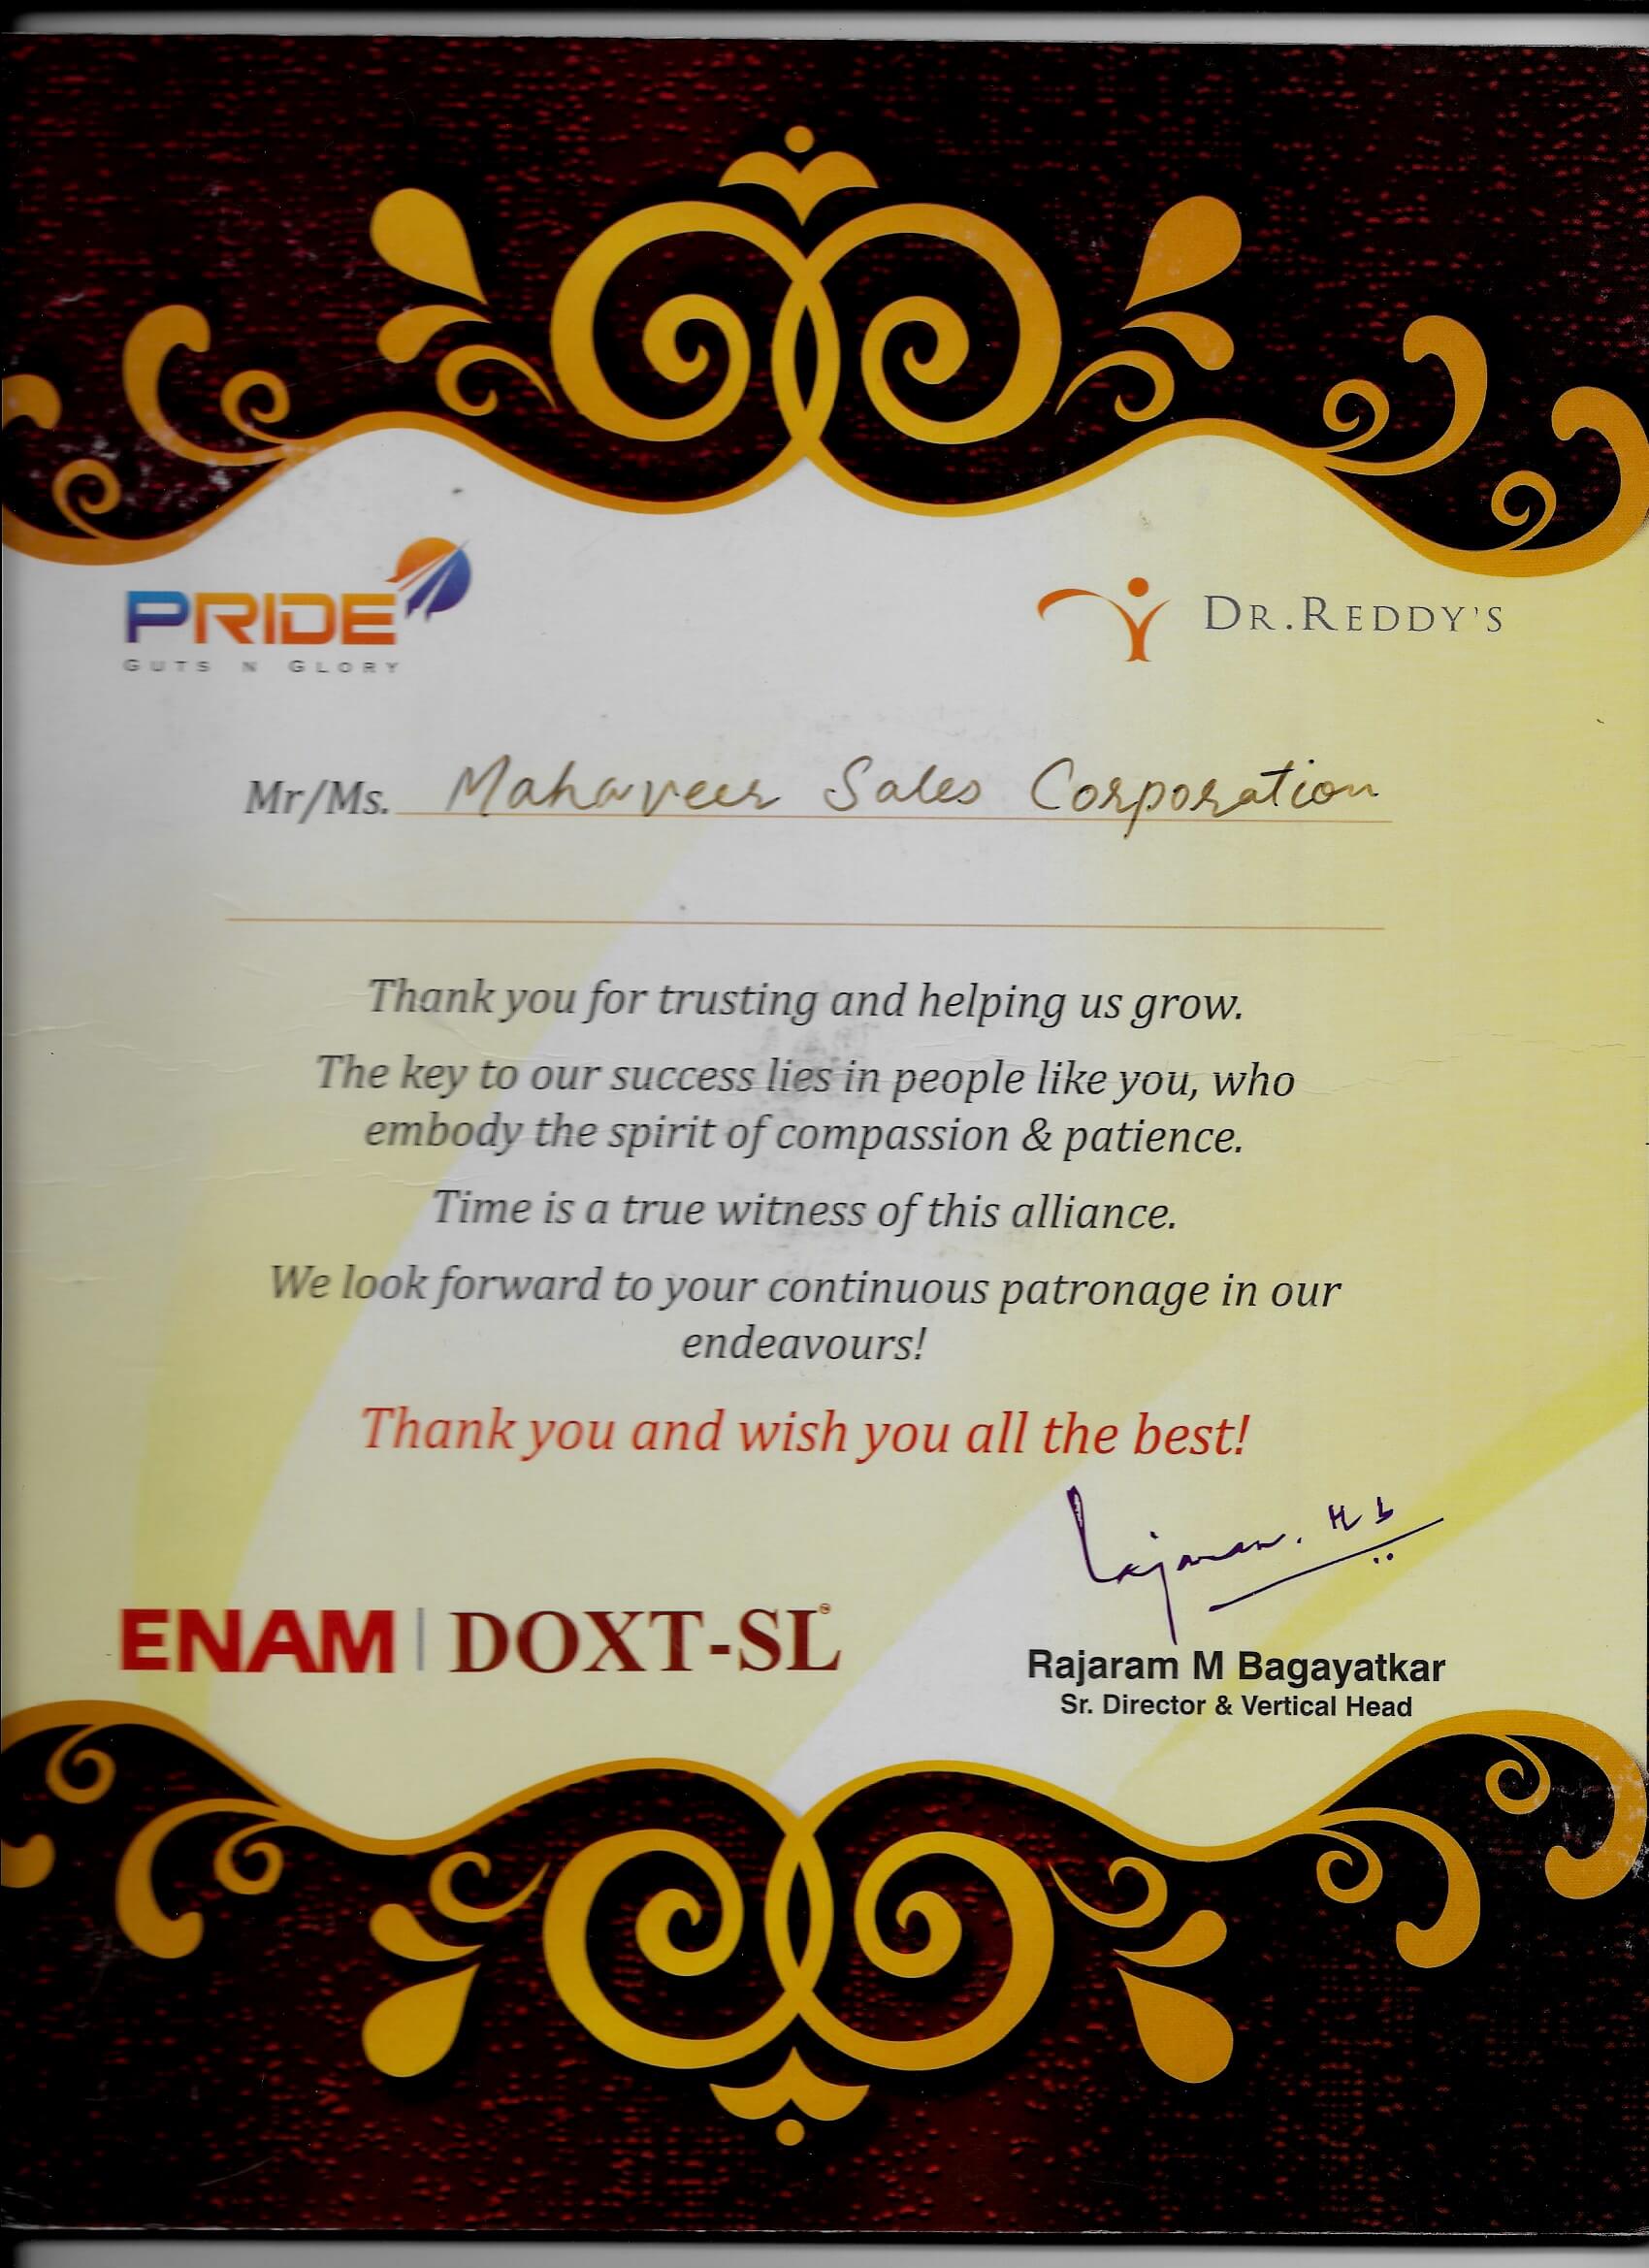 PRIDE
GUTS N GLORY
DR.REDDY'S
Mr/Ms. Mahaveer Sales Corporation
Thank you for trusting and helping us grow.
The key to our success lies in people like you, who
embody the spirit of compassion & patience.
Time is a true witness of this alliance.
We look forward to your continuous patronage in our
endeavours!
Thank you and wish you all the best!
Rajaram. M b
ENAM | DOXT-SL™
Rajaram M Bagayatkar
Sr. Director & Vertical Head